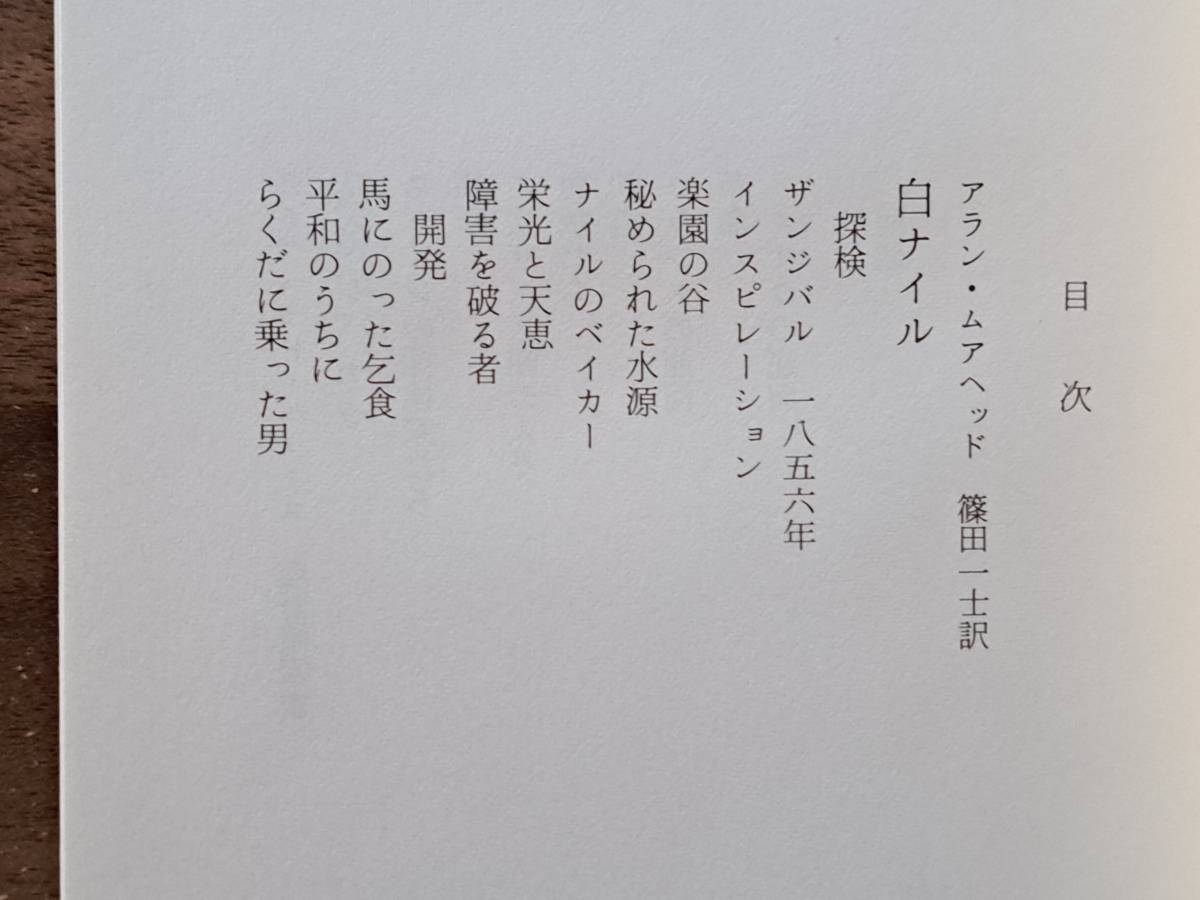 目次
アラン・ムアヘッド 篠田一士訳
白ナイル
探検
ザンジバル 一八五六年
インスピレーション
楽園の谷
秘められた水源
ナイルのベイカー
栄光と天恵
障害を破る者
開発
馬にのった乞食
平和のうちに
らくだに乗った男